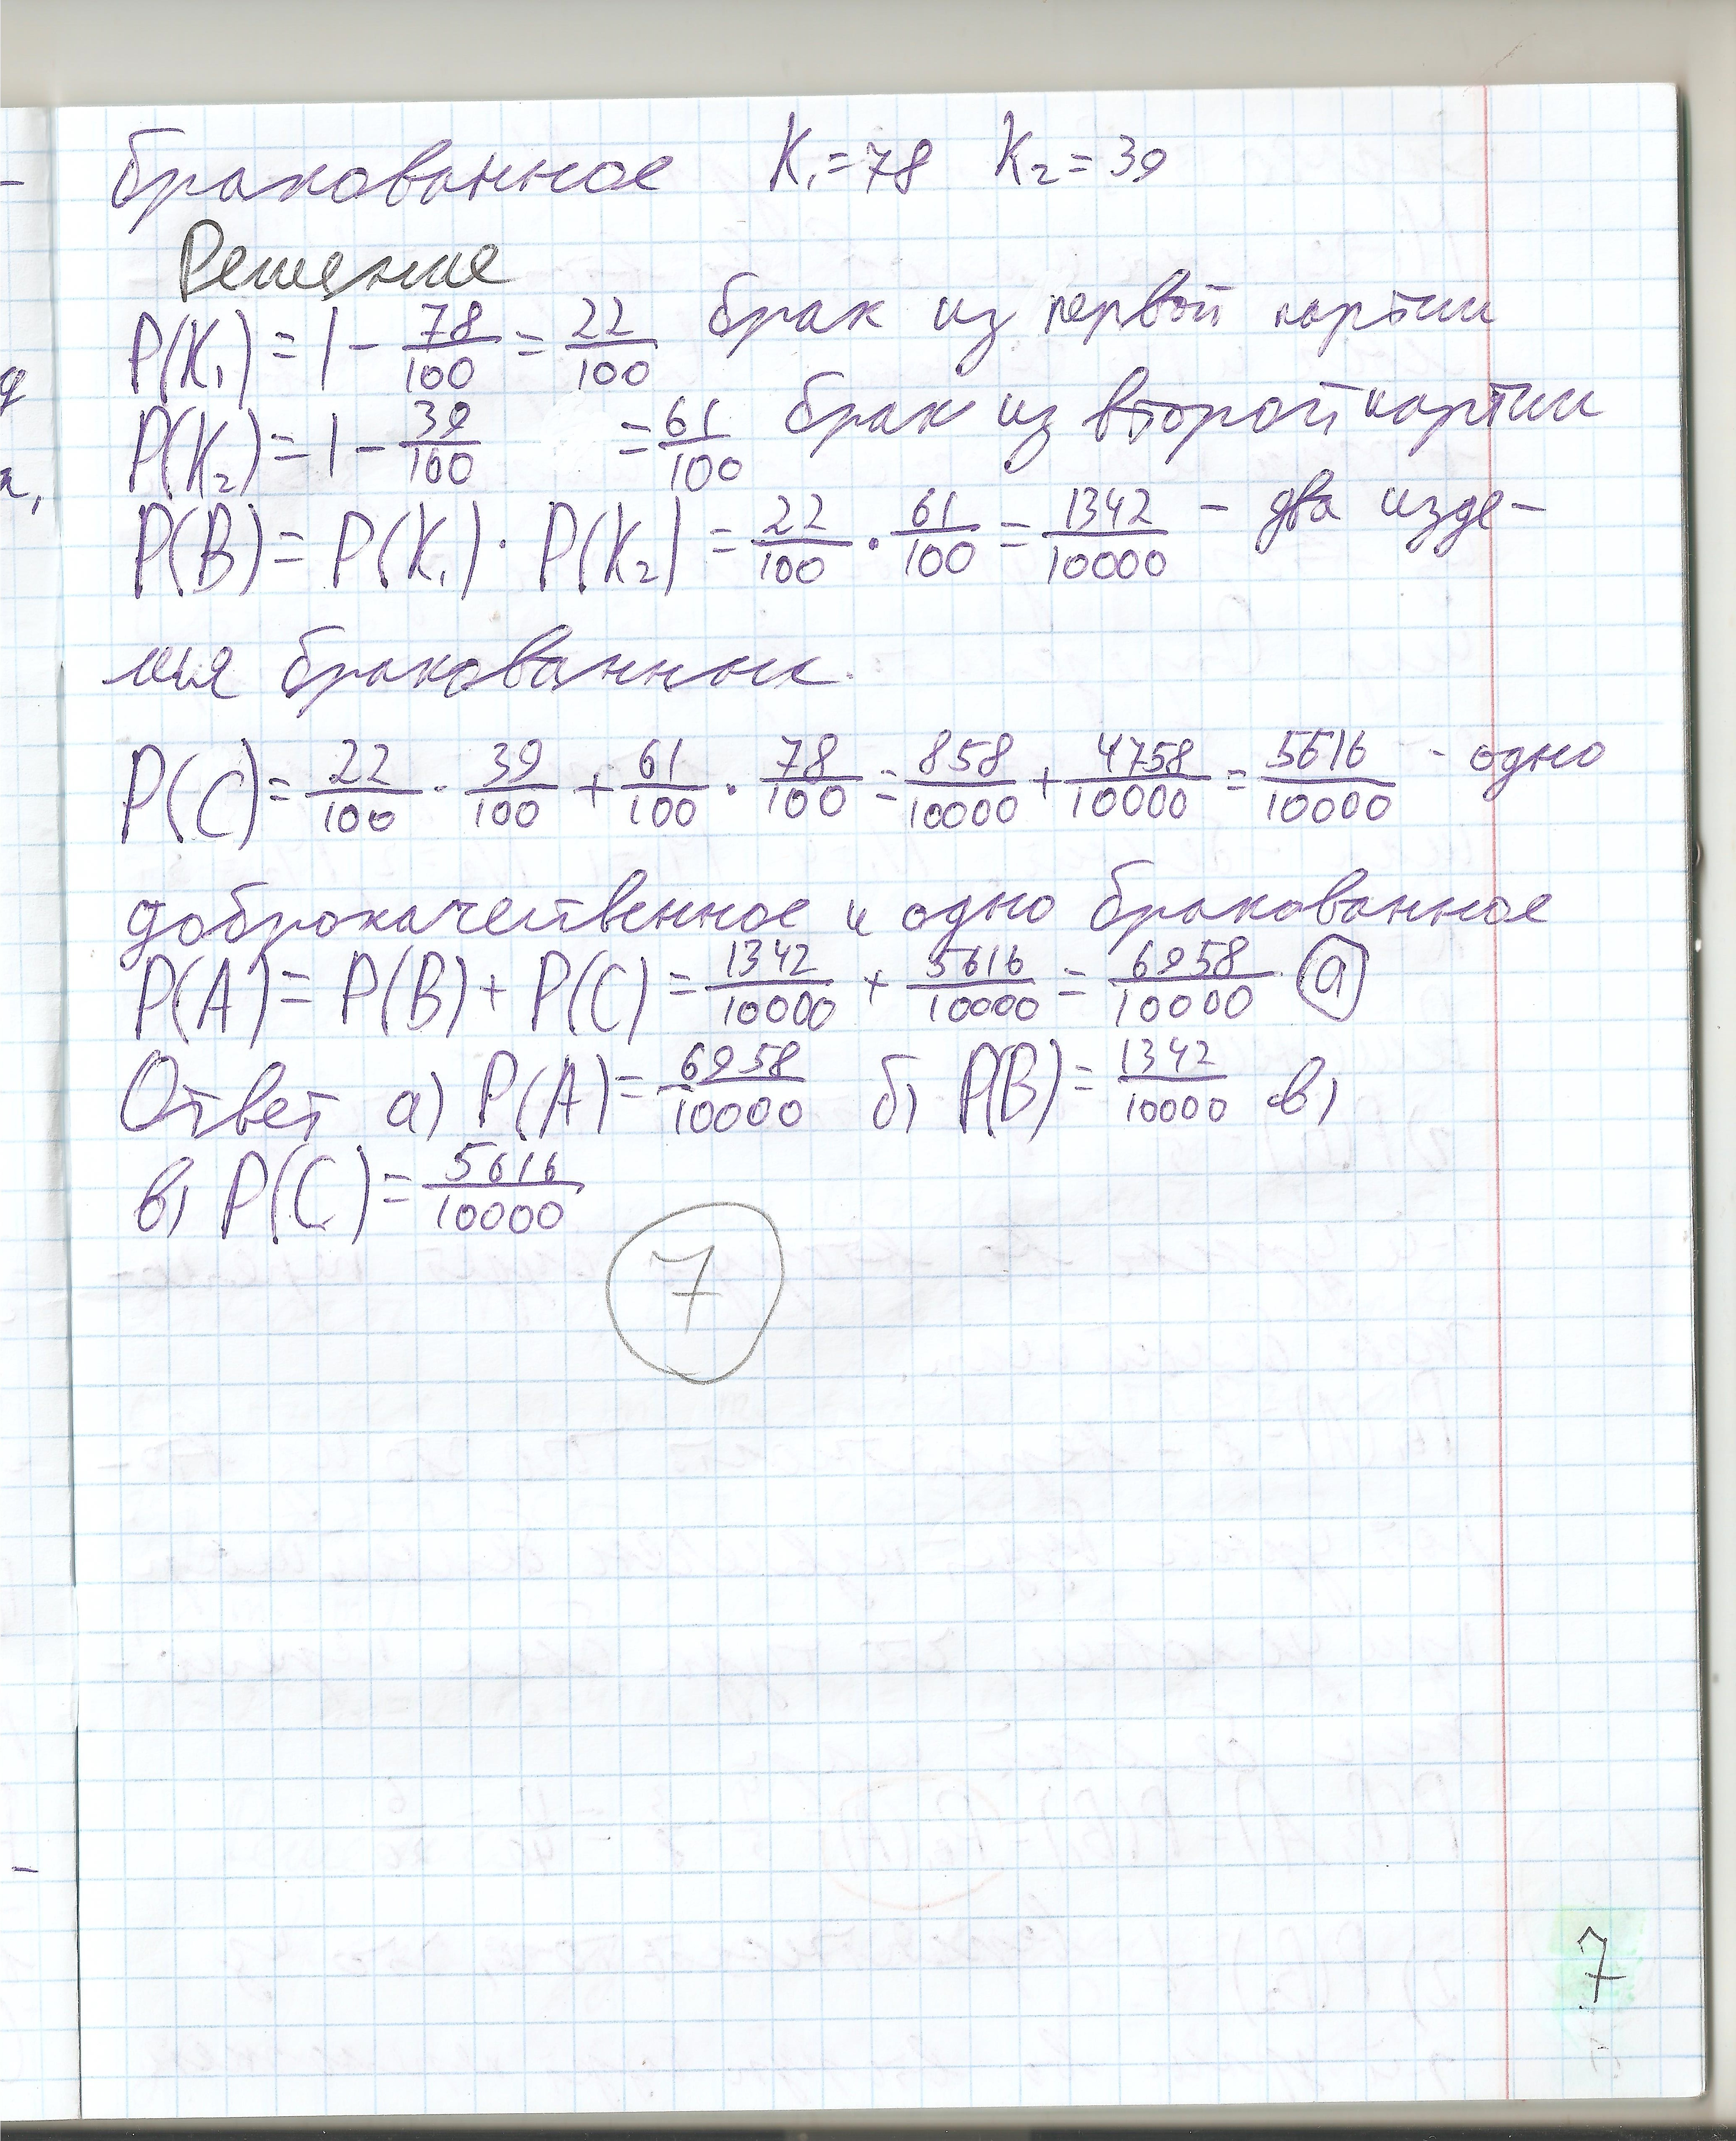 бракованное K₁=78 K₂=39
Решение
P(K₁)=1-78/100=22/100 брак из первой партии
P(K₂)=1-39/100 =61/100 брак из второй партии
P(B)=P(K₁)·P(K₂)=22/100·61/100=1342/10000 - два изде-
лия бракованных.
P(C)=22/100·39/100+61/100·78/100=858/10000+4758/10000=5616/10000 - одно
доброкачественное и одно бракованное
P(A)=P(B)+P(C)=1342/10000+5616/10000=6958/10000 а
Ответ а) P(A)=6958/10000 б) P(B)=1342/10000 в)
в) P(C)=5616/10000
7
7